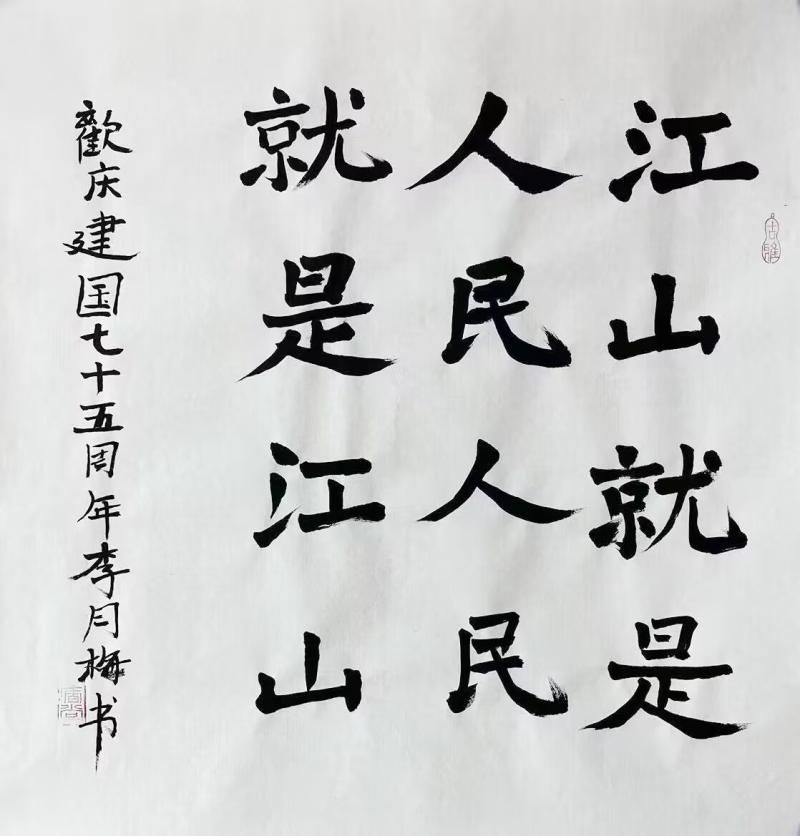 江山就是
人民人民
就是江山
歡庆建国七十五周年李月梅书